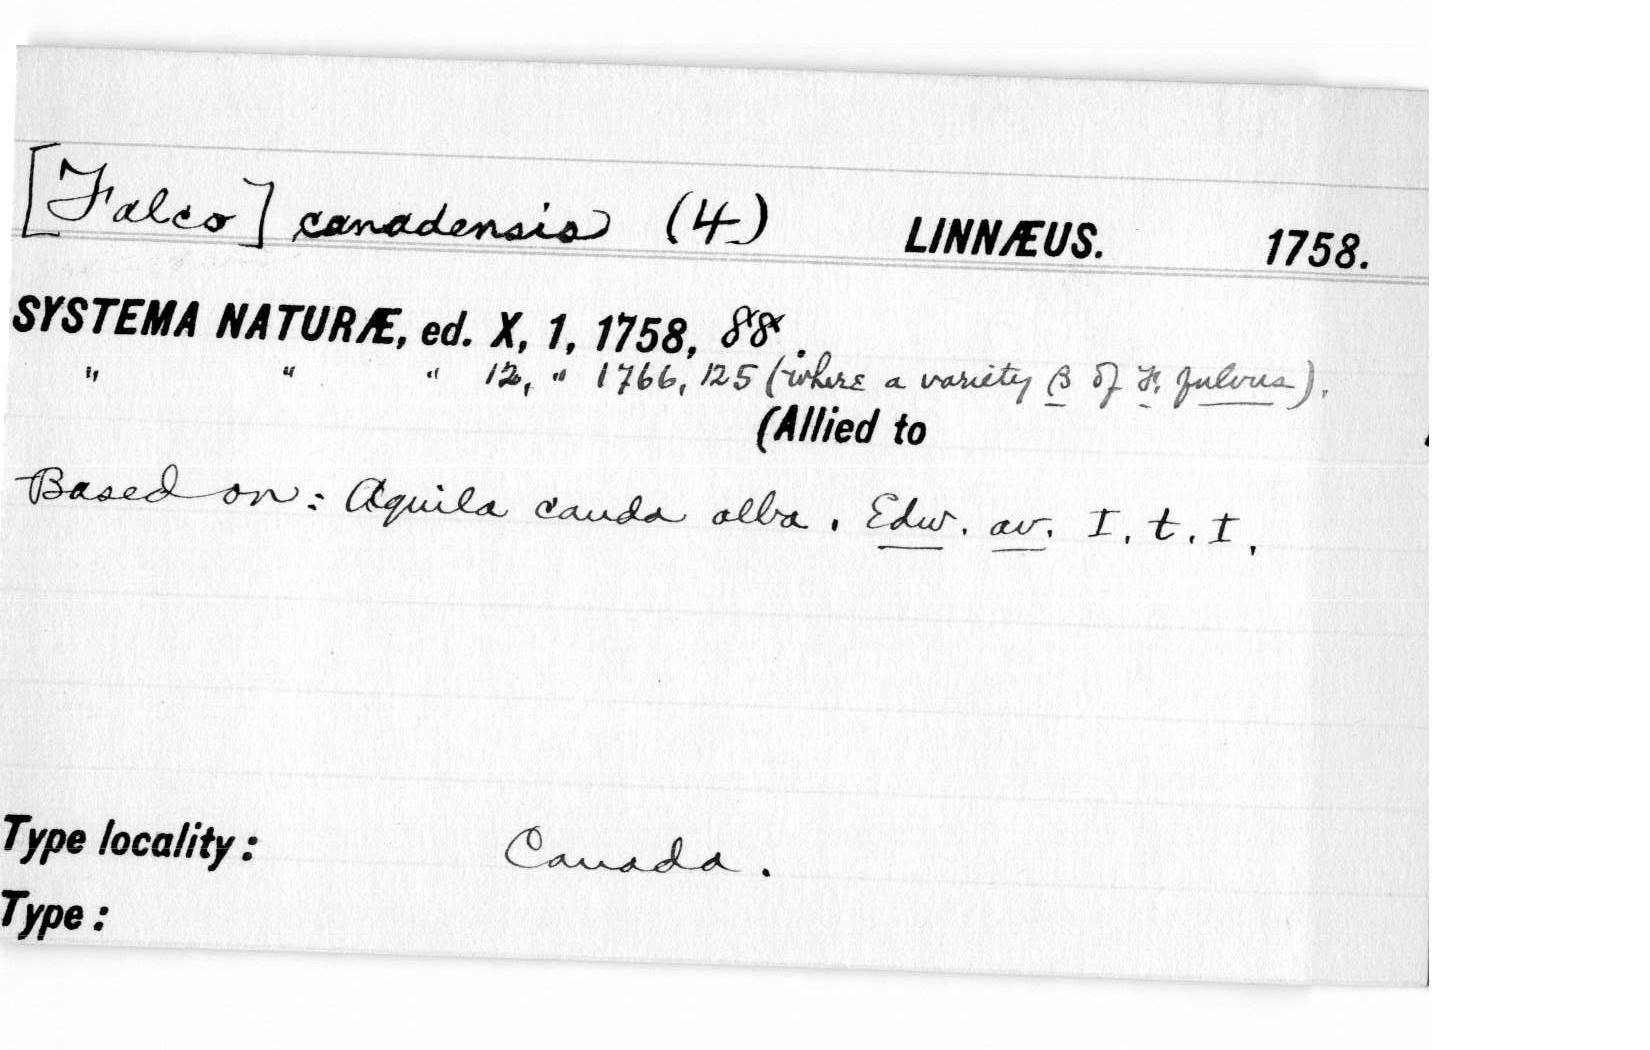 [Falco] canadensis (4) LINNÆUS. 1758.
SYSTEMA NATURÆ, ed. X, 1, 1758, 88.
" " " 12, " 1766, 125 (where a variety β of F. fulvus).
(Allied to
Based on: Aquila cauda alba. Edw. av. I. t. I.
Type locality: Canada.
Type: